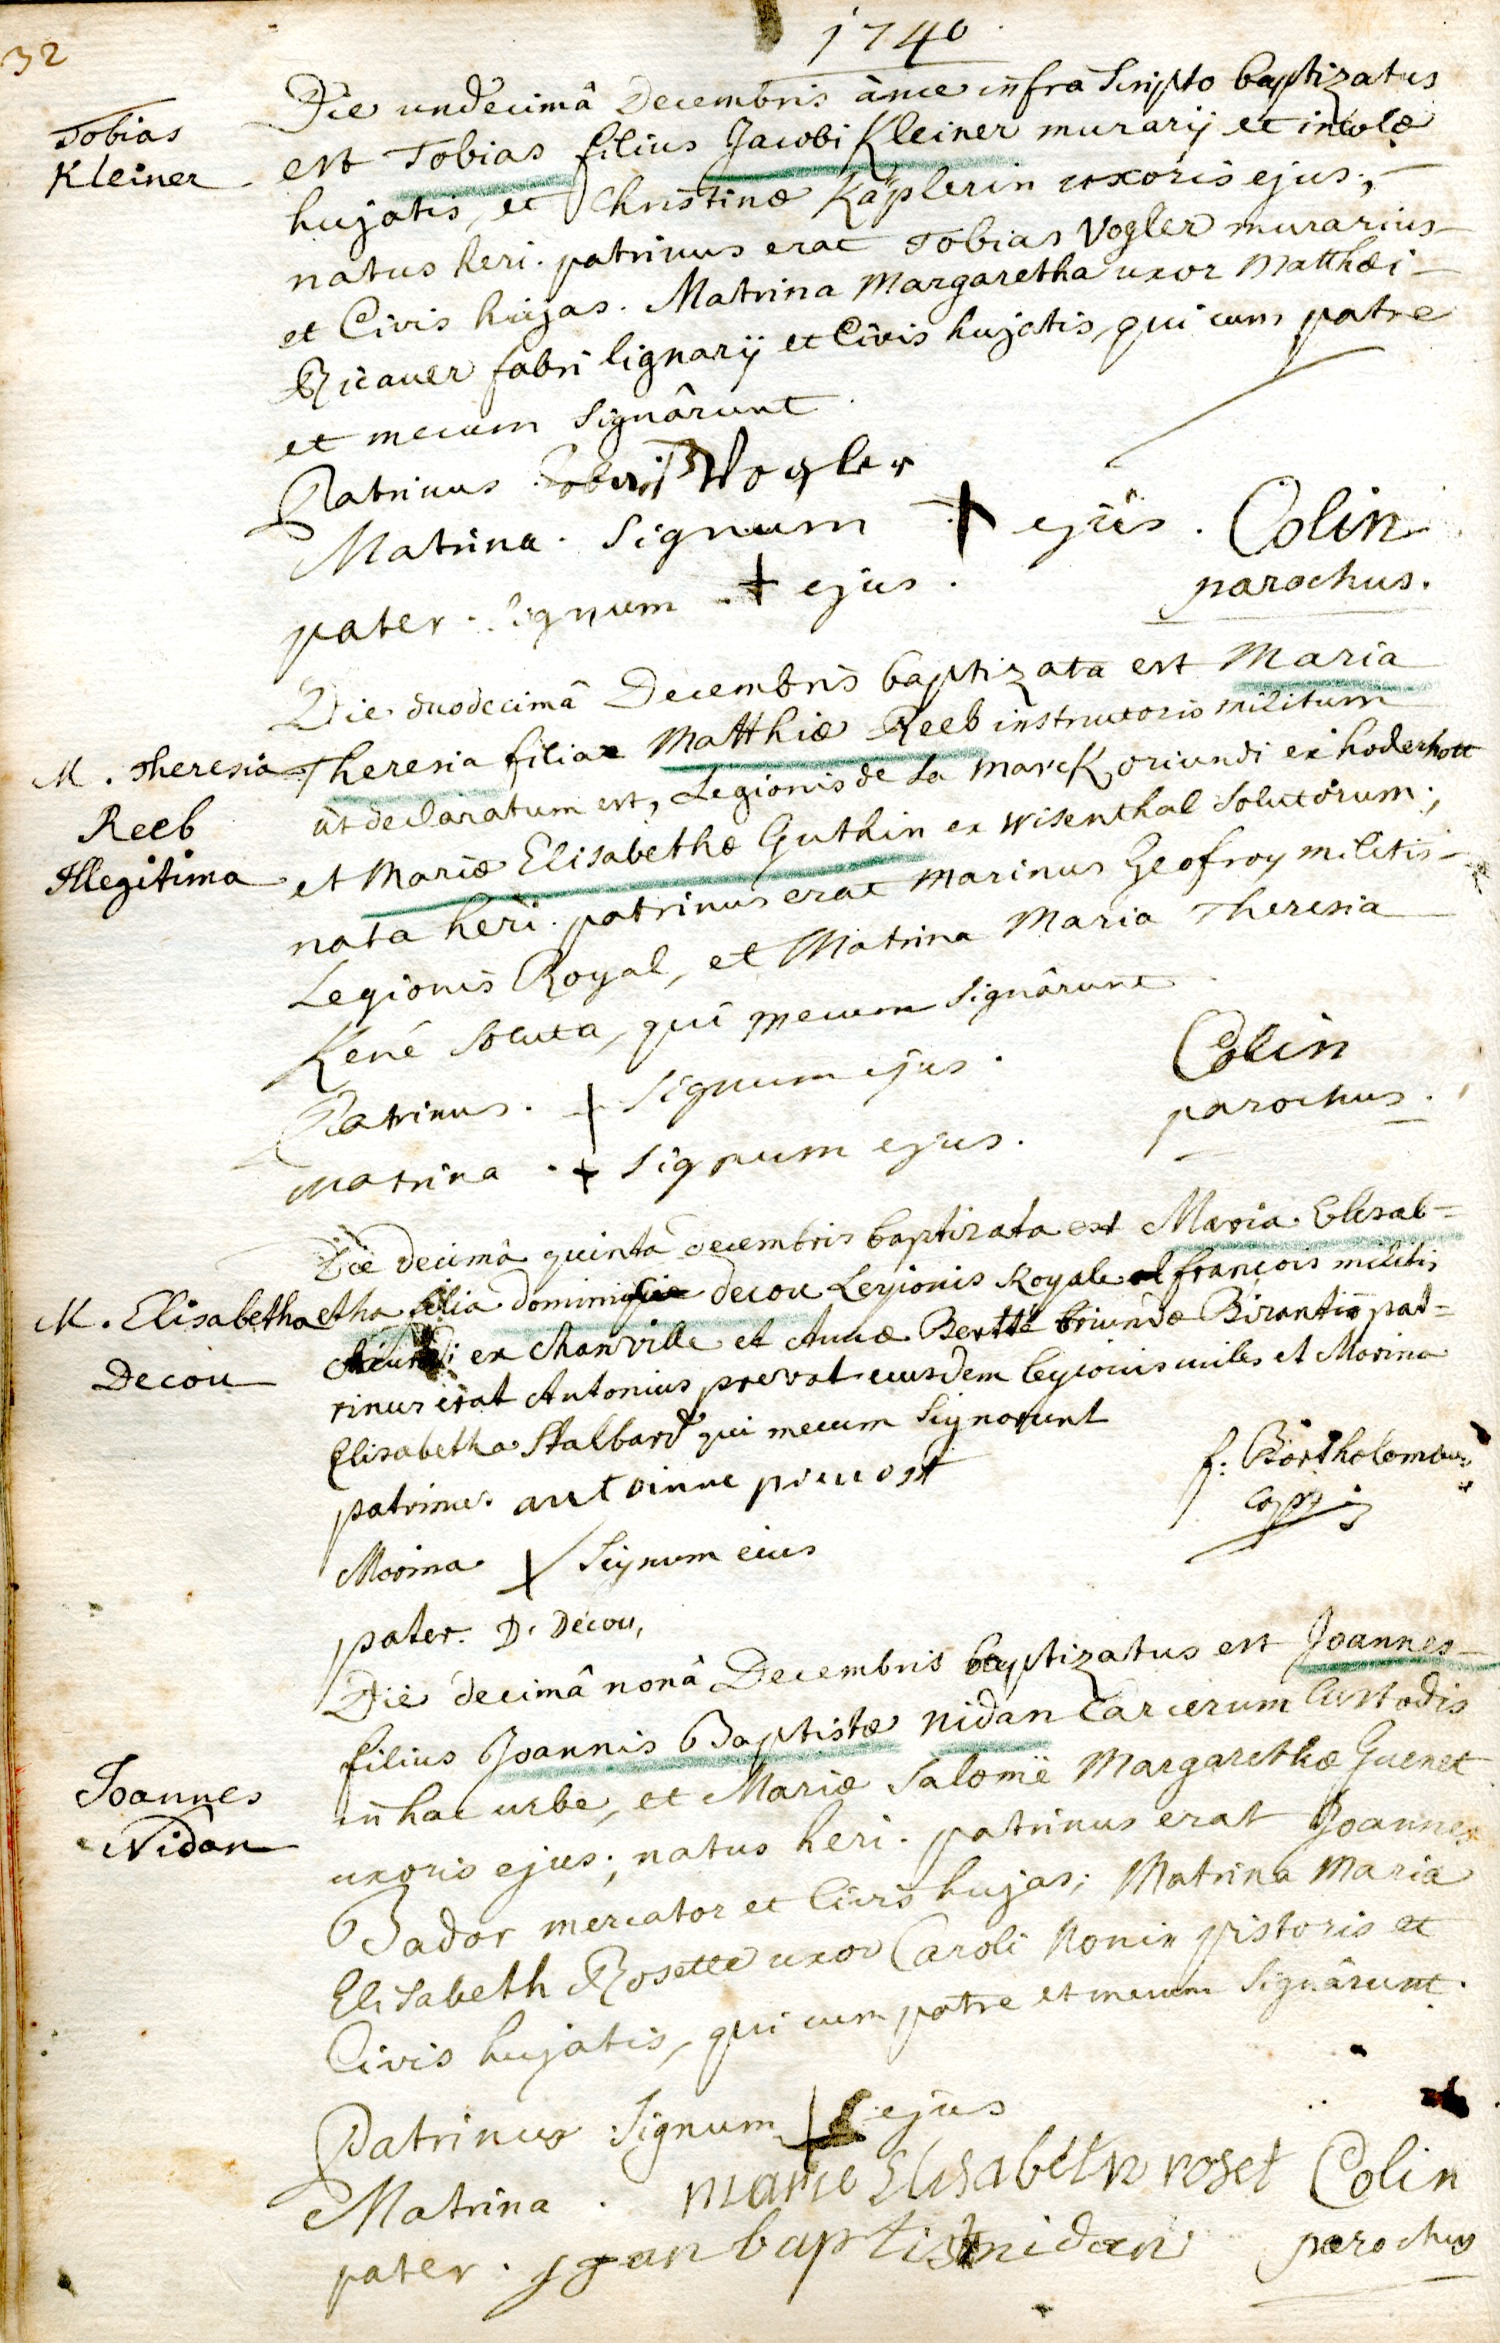 32
1740
Tobias
Kleiner
Die undecimâ Decembris à me infrà Scripto baptizatus
est Tobias filius Jacobi Kleiner murarij et incolæ
hujatis, et Christinæ Käplerin uxoris ejus;
natus heri. patrinus erat Tobias Vogler murarius
et Civis hujas. Matrina Margaretha uxor Matthæi
fabri lignarij et Civis hujatis, qui cum patre
et mecum Signârunt.
Patrinus Wogler
Matrina. Signum + ejus. Colin
pater. Signum + ejus. parochus.
M. Theresia
Reeb
Illegitima
Die duodecimâ Decembris baptizata est Maria
Theresia filia Matthiæ Reeb instructoris militum
ut declaratum est, Legionis de La Marck, oriundi ex hoderhott
et Mariæ Elisabethæ Guthin ex Wisenthal Solutorum;
nata heri. patrinus erat Marinus Geofroy militis
Legionis Royal, et Matrina Maria Theresia
Kené Soluta, qui mecum Signârunt.
Patrinus. + Signum ejus. Colin
Matrina. + Signum ejus. parochus.
M. Elisabetha
Decou
Die decimâ quintâ decembris baptizata est Maria Elisab=
etha filia dominici decou Legionis Royale françois militis
ex Manville et Annæ Bertté oriundæ Bizantio pat=
rinus erat Antonius prevot eiusdem legionis miles et Marina
Elisabetha Stalbard qui mecum Signarunt
patrinus antoinne preuost f: Bartholomæus
Marina + Signum eius
pater. D. Decou,
Joannes
Nidan
Die decimâ nonâ Decembris baptizatus est Joannes
filius Joannis Baptistæ Nidan Carcerum Custodis
in hac urbe, et Mariæ Salomë Margarethæ Guenet
uxoris ejus; natus heri. patrinus erat Joannes
Bador mercator et Civis hujas; Matrina Maria
Elisabeth Rosette uxor Caroli Nonin pistoris et
Civis hujatis, qui cum patre et mecum Signârunt.
Patrinus Signum + ejus
Matrina. marie Elisabeth roset Colin
pater. jean baptist nidan parochus